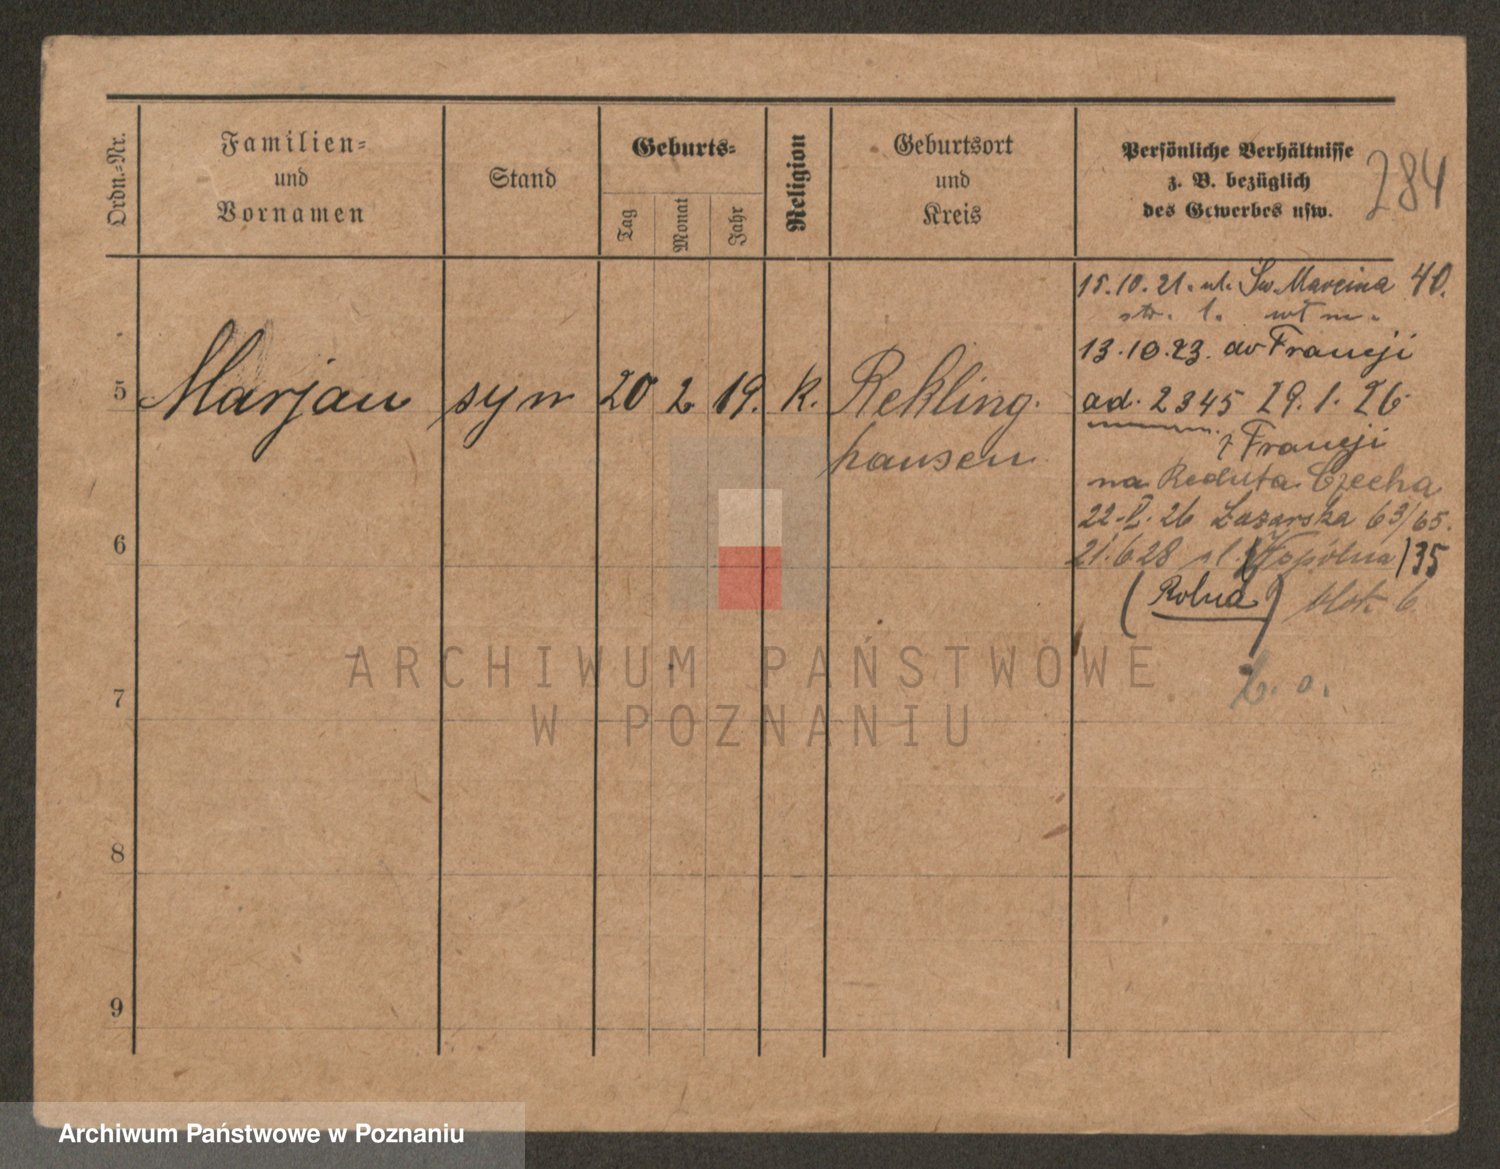 Ordn.-Nr.
Familien-
und
Vornamen
Stand
Geburts-
Tag
Monat
Jahr
Religion
Geburtsort
und
Kreis
Persönliche Verhältnisse
z. B. bezüglich
des Gewerbes usw.
284
15.10.21. ul. Św. Marcina 40.
str. 1. wł m.
13.10.23. do Francji
5 Marjan syn 20 2 19. k. Rekling.
hausen
ad. 2345 29.1.26
z Francji
na Reduta Czecha
22-I-26 Łazarska 63/65.
21.6 28 ul. Wspólna 35
(Rolna) blok 6.
Z. o.
6
7
8
9
ARCHIWUM PAŃSTWOWE
W POZNANIU
Archiwum Państwowe w Poznaniu